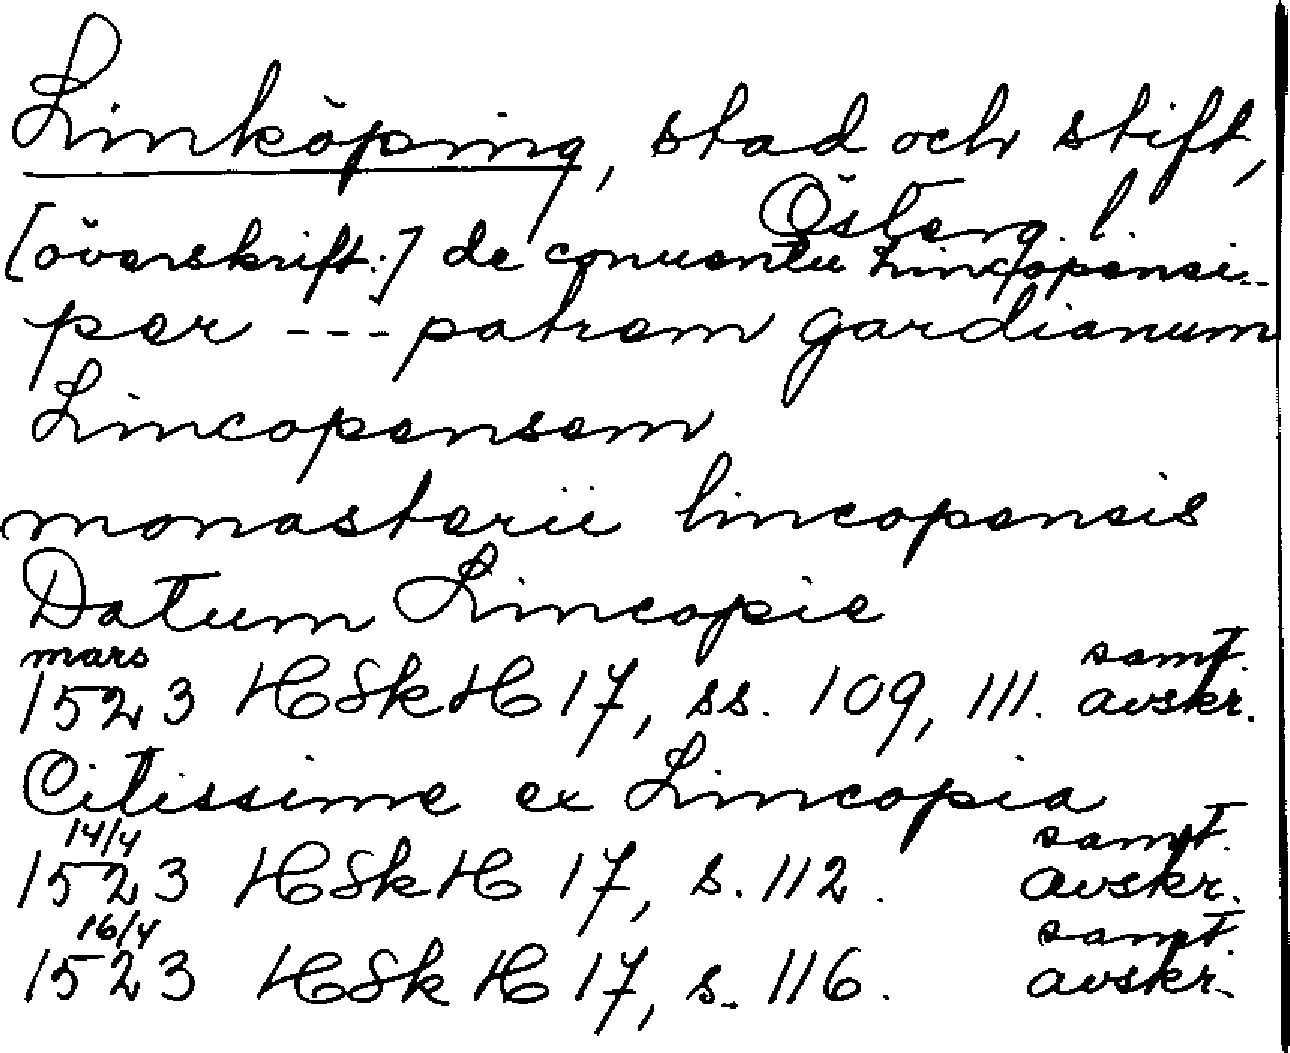 Linköping, stad och stift,
Österg. l.
[överskrift:] de conuentu Lincopensi..
per --- patrem gardianum
Lincopensem
monasterii lincopensis
Datum Lincopie
mars samt.
1523 HSkH 17, ss. 109, 111. avskr.
Citissime ex Lincopia
14/4 samt.
1523 HSkH 17, s. 112. avskr.
16/4 samt.
1523 HSkH 17, s. 116. avskr.